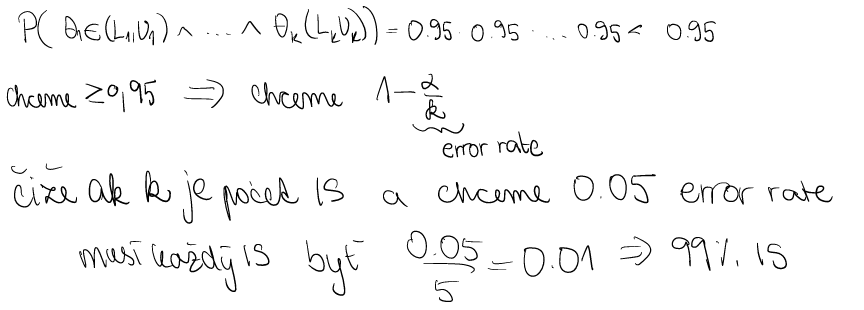 P( θ₁∈(L₁,U₁) ∧ ... ∧ θₖ(LₖUₖ)) = 0.95 · 0.95 · ... 0.95 < 0.95
chceme ≥0,95 ⇒ chceme 1 - α/k
error rate
čiže ak k je počet IS a chceme 0.05 error rate
musí každý IS byť 0.05/5 = 0.01 ⇒ 99% IS